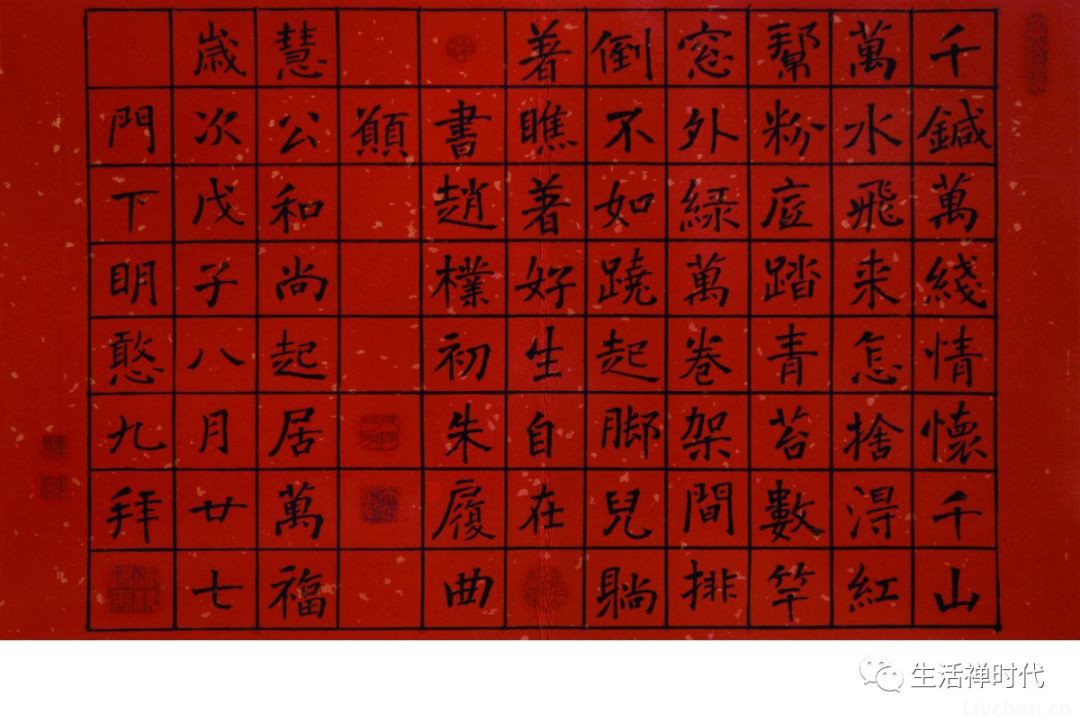 千鍼萬綫情懷千山
萬水飛来怎捨淂紅
幫粉底踏青苔數竿
窓外綠萬卷架間排
倒不如蹺起脚兒躺
著瞧著好生自在
書趙樸初朱履曲
慧公和尚起居萬福
歲次戊子八月廿七
門下明憨九拜
生活禅时代
Livchan.cn